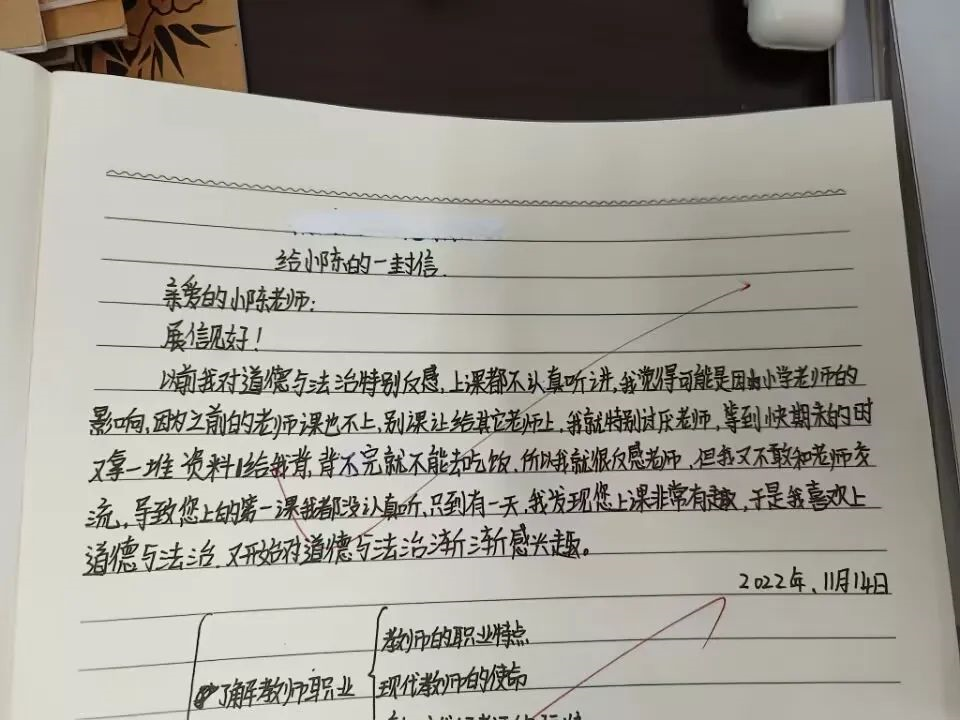 给小陈的一封信.
亲爱的小陈老师:
展信见好!
以前我对道德与法治特别反感,上课都不认真听讲,我觉得可能是因由小学老师的
影响,因为之前的老师课也不上,别课让给其它老师上,我就特别讨厌老师,等到快期末的时
又拿一堆资料给我背,背不完就不能去吃饭,所以我就很反感老师,但我又不敢和老师交
流,导致您上的第一课我都没认真听,只到有一天,我发现您上课非常有趣,于是我喜欢上
道德与法治,又开始对道德与法治渐渐感兴趣。
2022年、11月14日
教师的职业特点
了解教师职业
现代教师的使命